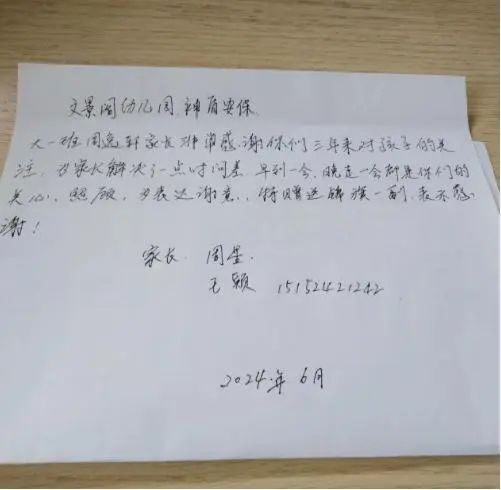 文景阁幼儿园 神盾安保
大一班周亮轩家长非常感谢你们三年来对孩子的关
注，为家长解决了一点时间差，早到一会，晚走一会都是你们的
关心，照顾，为表达谢意，特赠送锦旗一副，表示感
谢！
家长 周星
王颖 15152421242
2024年6月